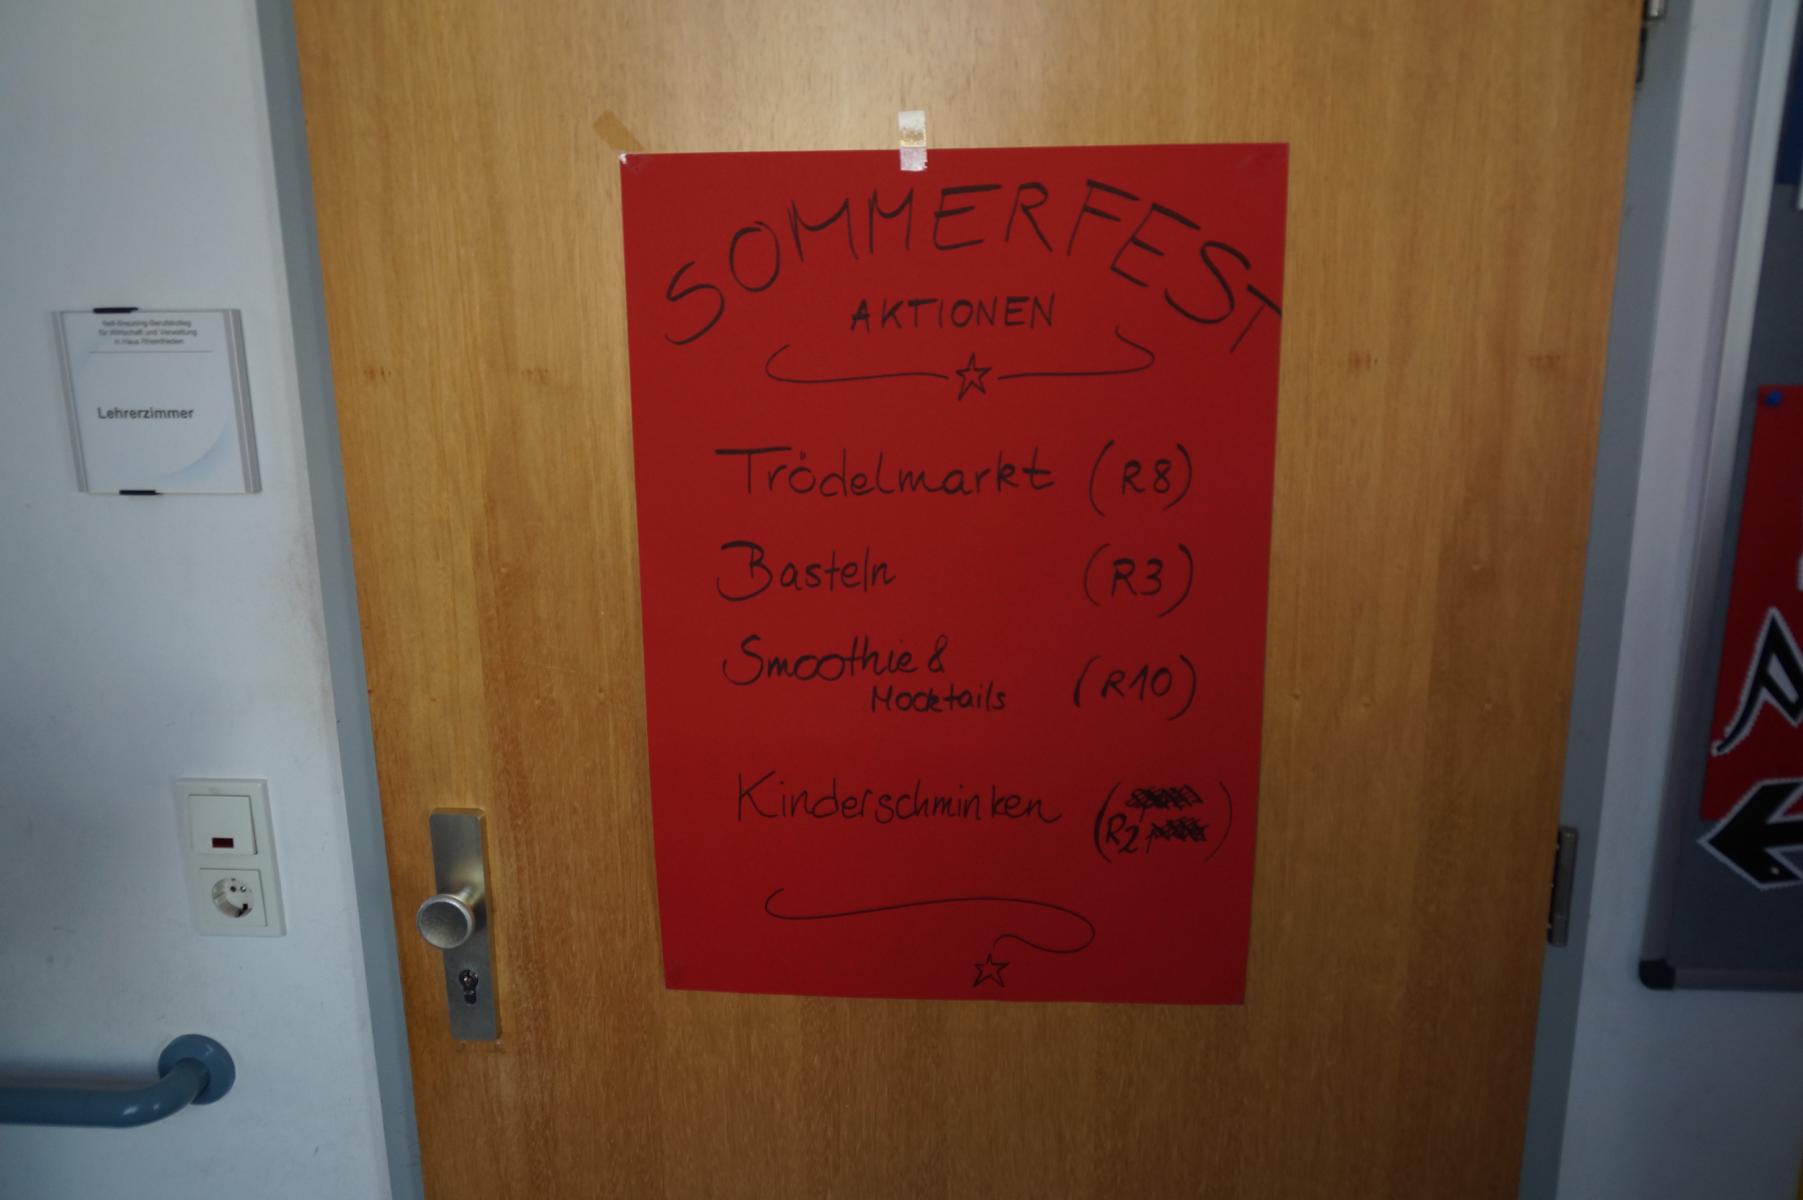 Nell-Breuning-Berufskolleg
für Wirtschaft und Verwaltung
in Haus Rheinfrieden
Lehrerzimmer
SOMMERFEST
AKTIONEN
Trödelmarkt (R8)
Basteln (R3)
Smoothie &
Mocktails (R10)
Kinderschminken (
R2, )